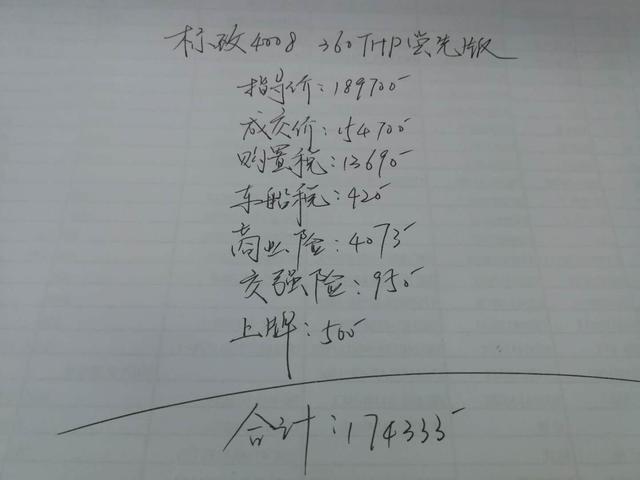 标致4008 360THP尝先版
指导价:189700
成交价:154700
购置税:13690
车船税:420
商业险:4073
交强险:950
上牌:500
合计:174333